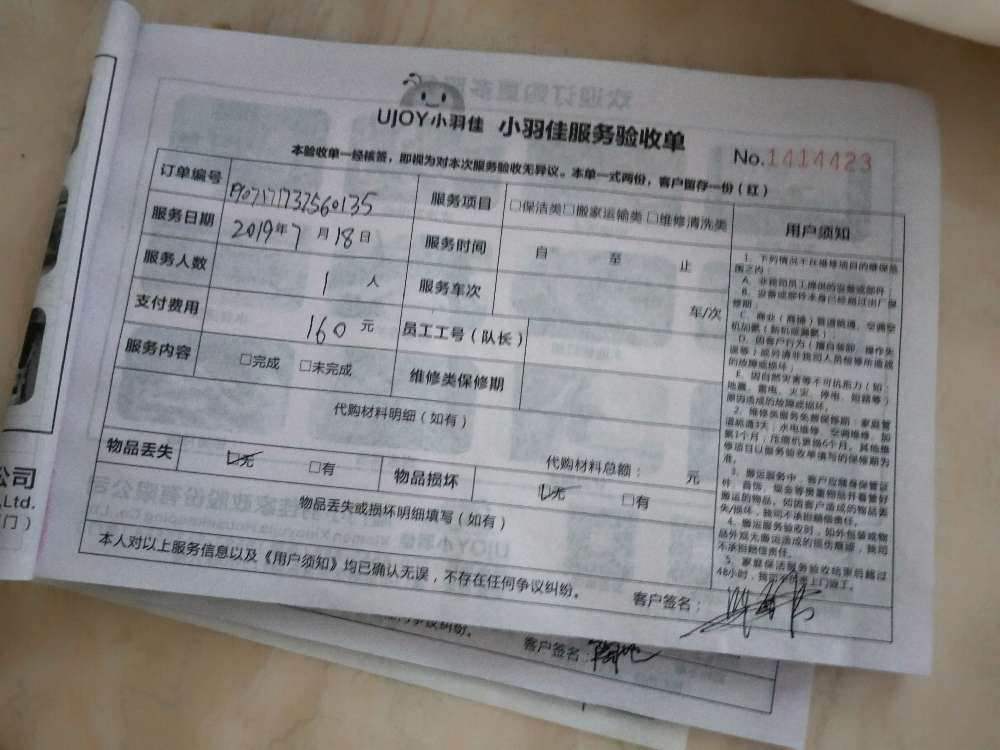 UJOY小羽佳 小羽佳服务验收单
No.1414423
本验收单一经核签，即视为对本次服务验收无异议。本单一式两份，客户留存一份（红）
订单编号
服务项目 □保洁类□搬家运输类 □维修清洗类
服务日期 2019年7月18日
服务时间 自 至 止
服务人数 1 人
服务车次 车/次
支付费用 160 元
员工工号（队长）
服务内容 □完成 □未完成
维修类保修期
代购材料明细（如有）
代购材料总额： 元
物品丢失 □无 □有
物品损坏 □无 □有
物品丢失或损坏明细填写（如有）
本人对以上服务信息以及《用户须知》均已确认无误，不存在任何争议纠纷。
客户签名：
用户须知
1、下列情况不在维修项目的维保范
围之内：
A、非我司员工提供的设备或部件
B、设备或部件本身已经超过出厂保
修期
C、商业（商铺）管道疏通、空调空
机加氟（新机或漏氟）
D、因客户行为（擅自装卸、操作失
误等）或另请非我司人员检修所造成
的故障或损坏；
E、因自然灾害等不可抗形力（如：
地震、雷电、火灾、停电、短路等）
原因造成的故障或损坏。
2、维修类服务免费保修期：家庭管
道疏通3天；水电维修、空调维修、加
氟1个月；压缩机更换6个月。其他维
修项目以服务验收单填写的保修期为
准。
3、搬运服务中，客户应随身保管证
件、首饰、现金等贵重物品并看管好
搬运的物品，如因客户造成的物品丢
失/损坏，我司不承担赔偿责任。
4、搬运服务验收时，如外包装或物
品外观无搬运造成的损伤痕迹，我司
不承担赔偿责任。
5、家庭保洁服务验收结束后超过
公司
,Ltd.
门）
争议纠纷。
客户签名：